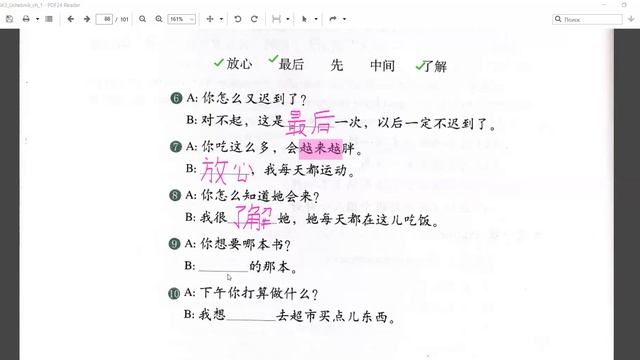 SK3_Uchebnik_ch_1 - PDF24 Reader
88 / 101 161% Поиск
放心 最后 先 中间 了解
6 A: 你怎么又迟到了？
B: 对不起，这是最后一次，以后一定不迟到了。
7 A: 你吃这么多，会越来越胖。
B: 放心，我每天都运动。
8 A: 你怎么知道她会来？
B: 我很了解她，她每天都在这儿吃饭。
9 A: 你想要哪本书？
B: ______的那本。
10 A: 下午你打算做什么？
B: 我想______去超市买点儿东西。